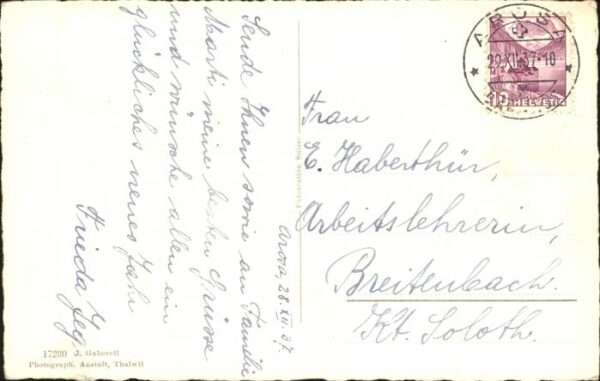 Arosa, 28. XII. 37.
Sende Ihnen sowie an Familie
Marti meine besten Grüsse
und wünsche allen ein
glückliches neues Jahr
Frieda
Frau
E. Haberthür,
Arbeitslehrerin,
Breitenbach.
Kt. Soloth.
AROSA
29.XII.37-10
10 HELVETIA
17200 J. Gaberell
Photograph. Anstalt, Thalwil